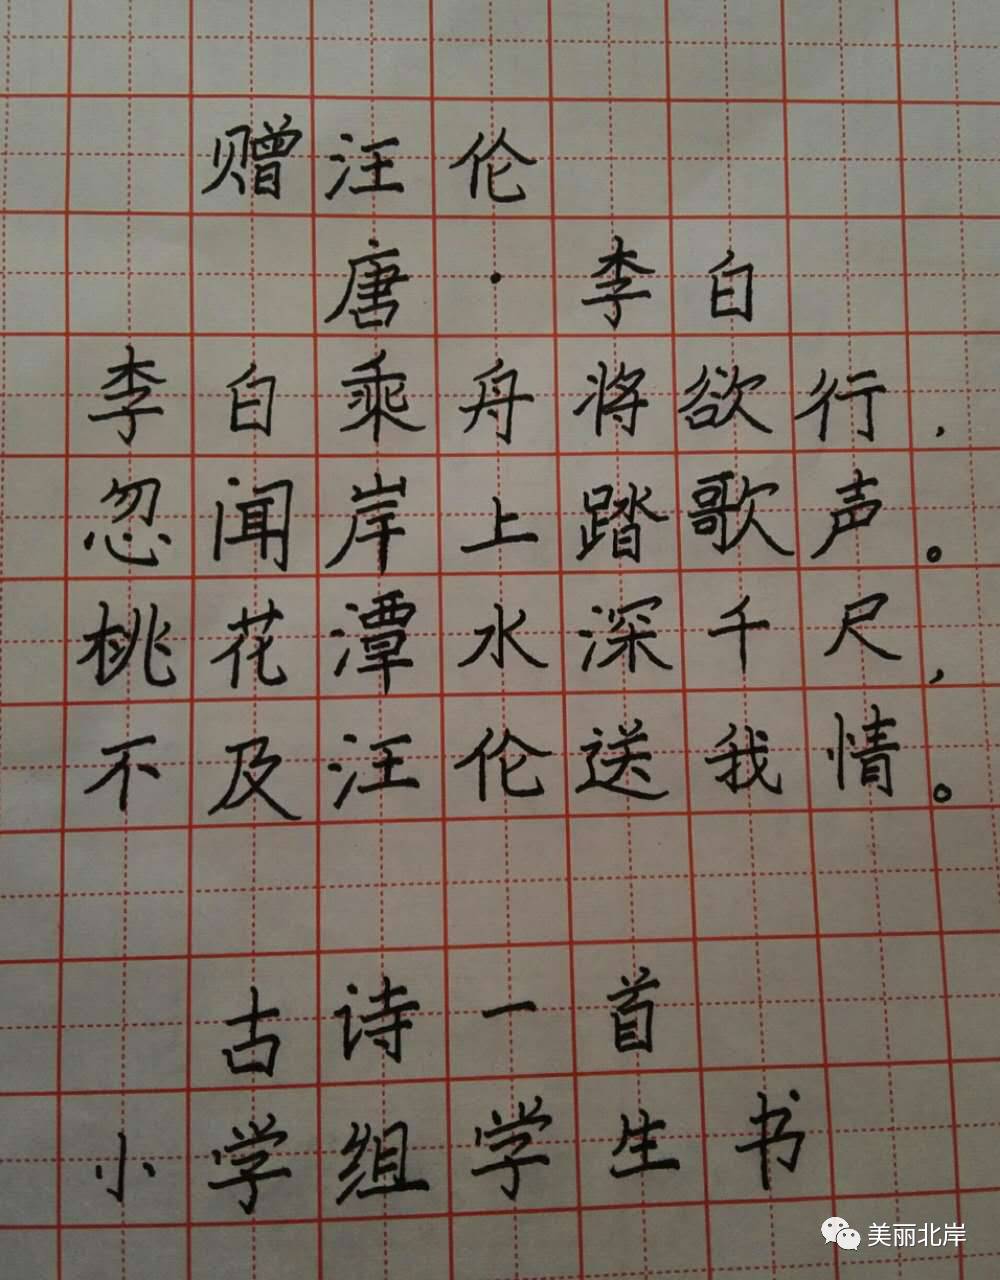 赠汪伦
唐·李白
李白乘舟将欲行，
忽闻岸上踏歌声。
桃花潭水深千尺，
不及汪伦送我情。
古诗一首
小学组学生书
美丽北岸